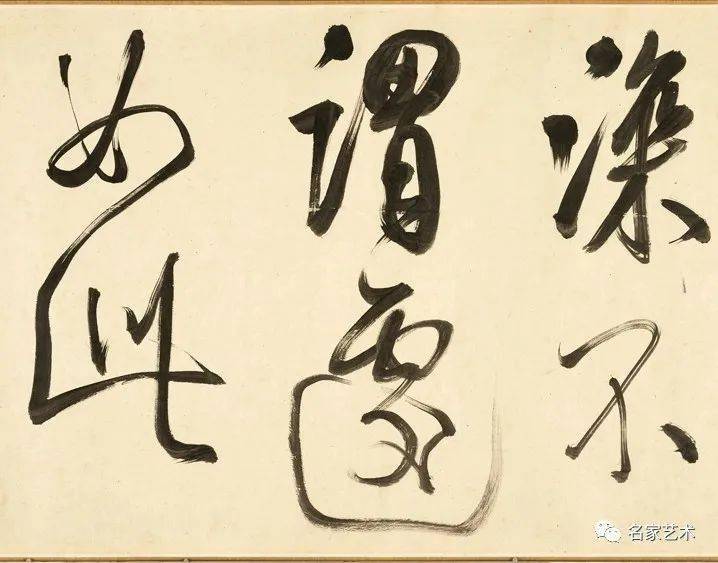 深不
謂遽
如此
名家艺术